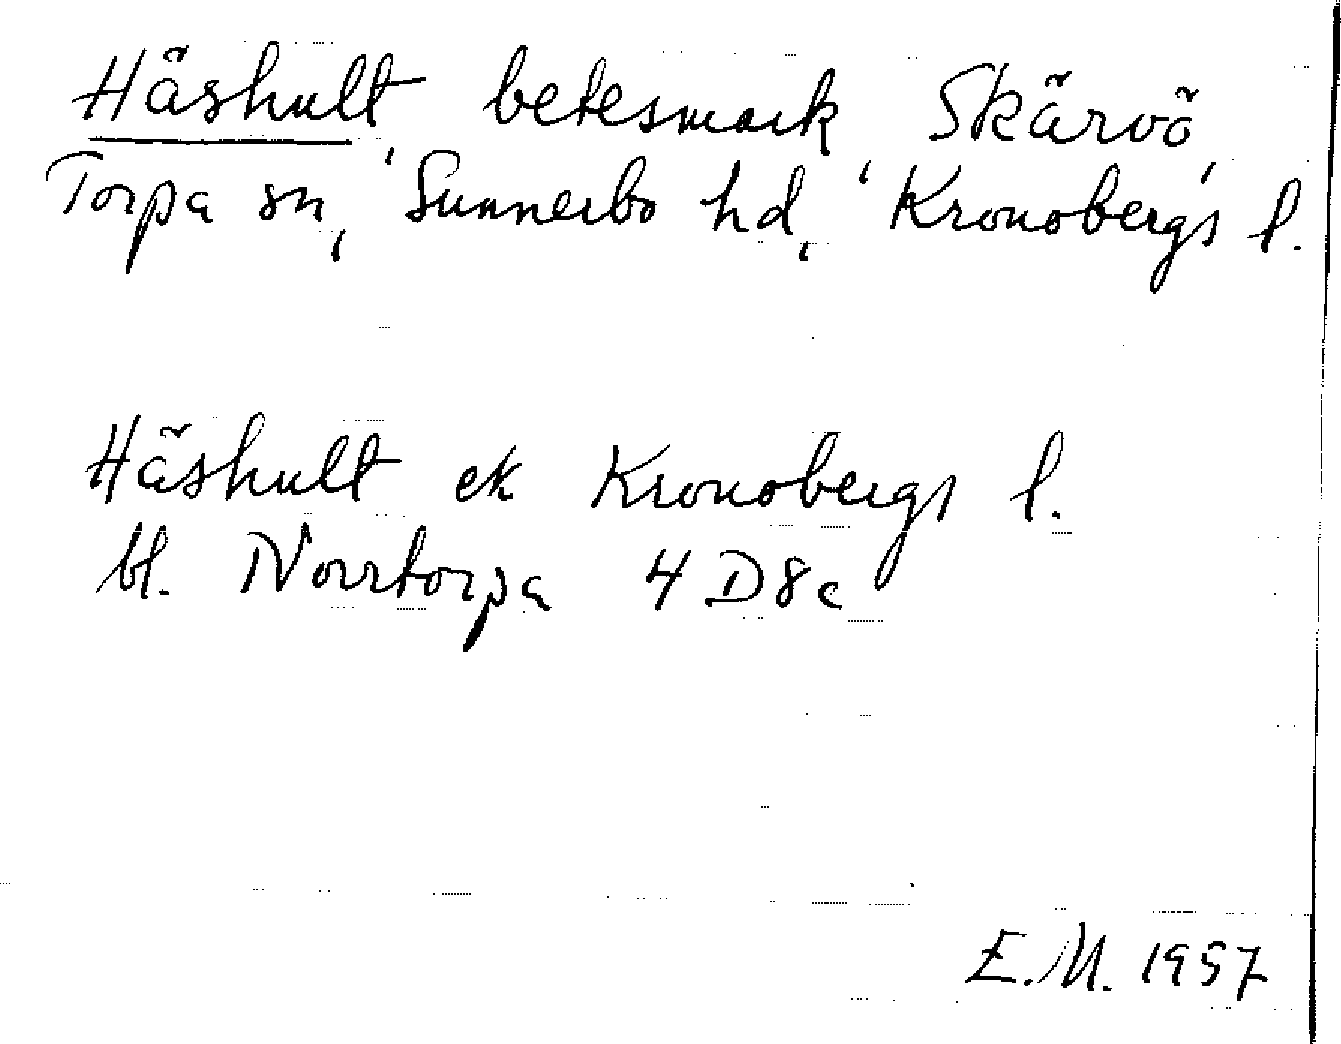 Häshult, betesmark, Skärvö,
Torpa sn, Sunnerbo hd, Kronobergs l.
Häshult ek Kronobergs l.
bl. Norrtorpa 4D8c
E.M. 1957